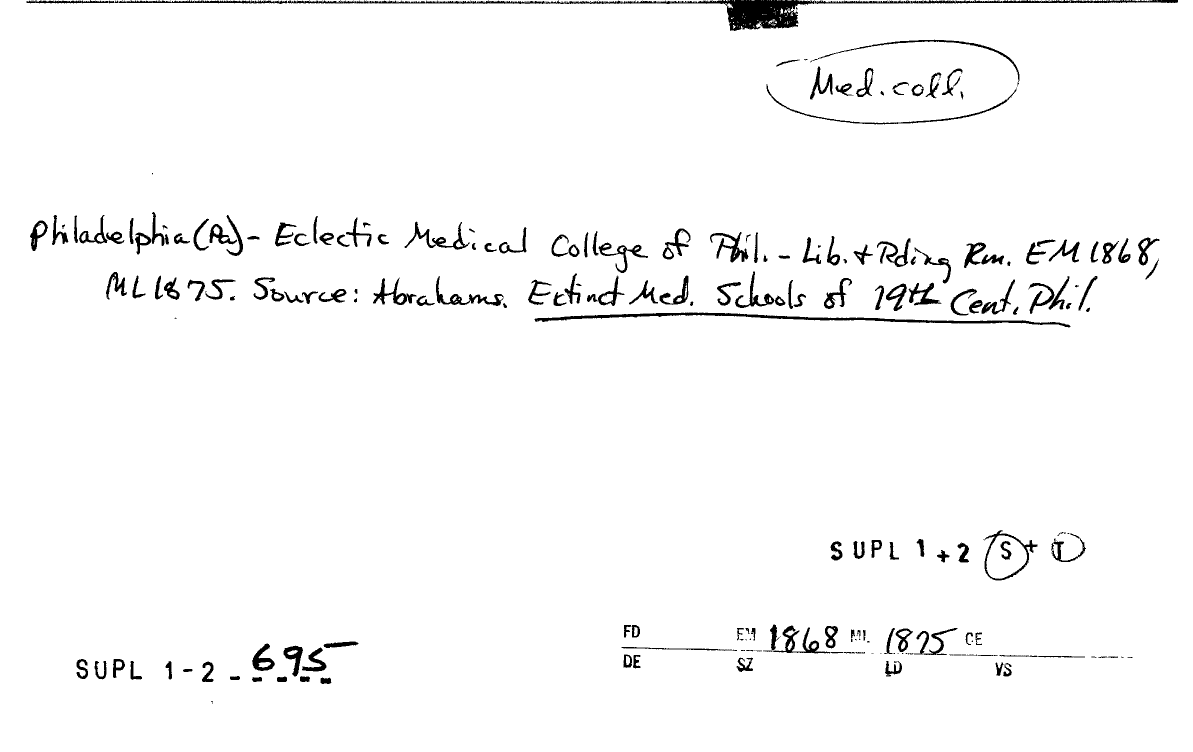 Med. coll.
Philadelphia (Pa) - Eclectic Medical College of Phil. - Lib. + Rding Rm. EM 1868,
ML 1875. Source: Abrahams. Extinct Med. Schools of 19th Cent. Phil.
SUPL 1 + 2 S + T
FD EM 1868 ML 1875 CE
DE SZ LD VS
SUPL 1-2 - 695